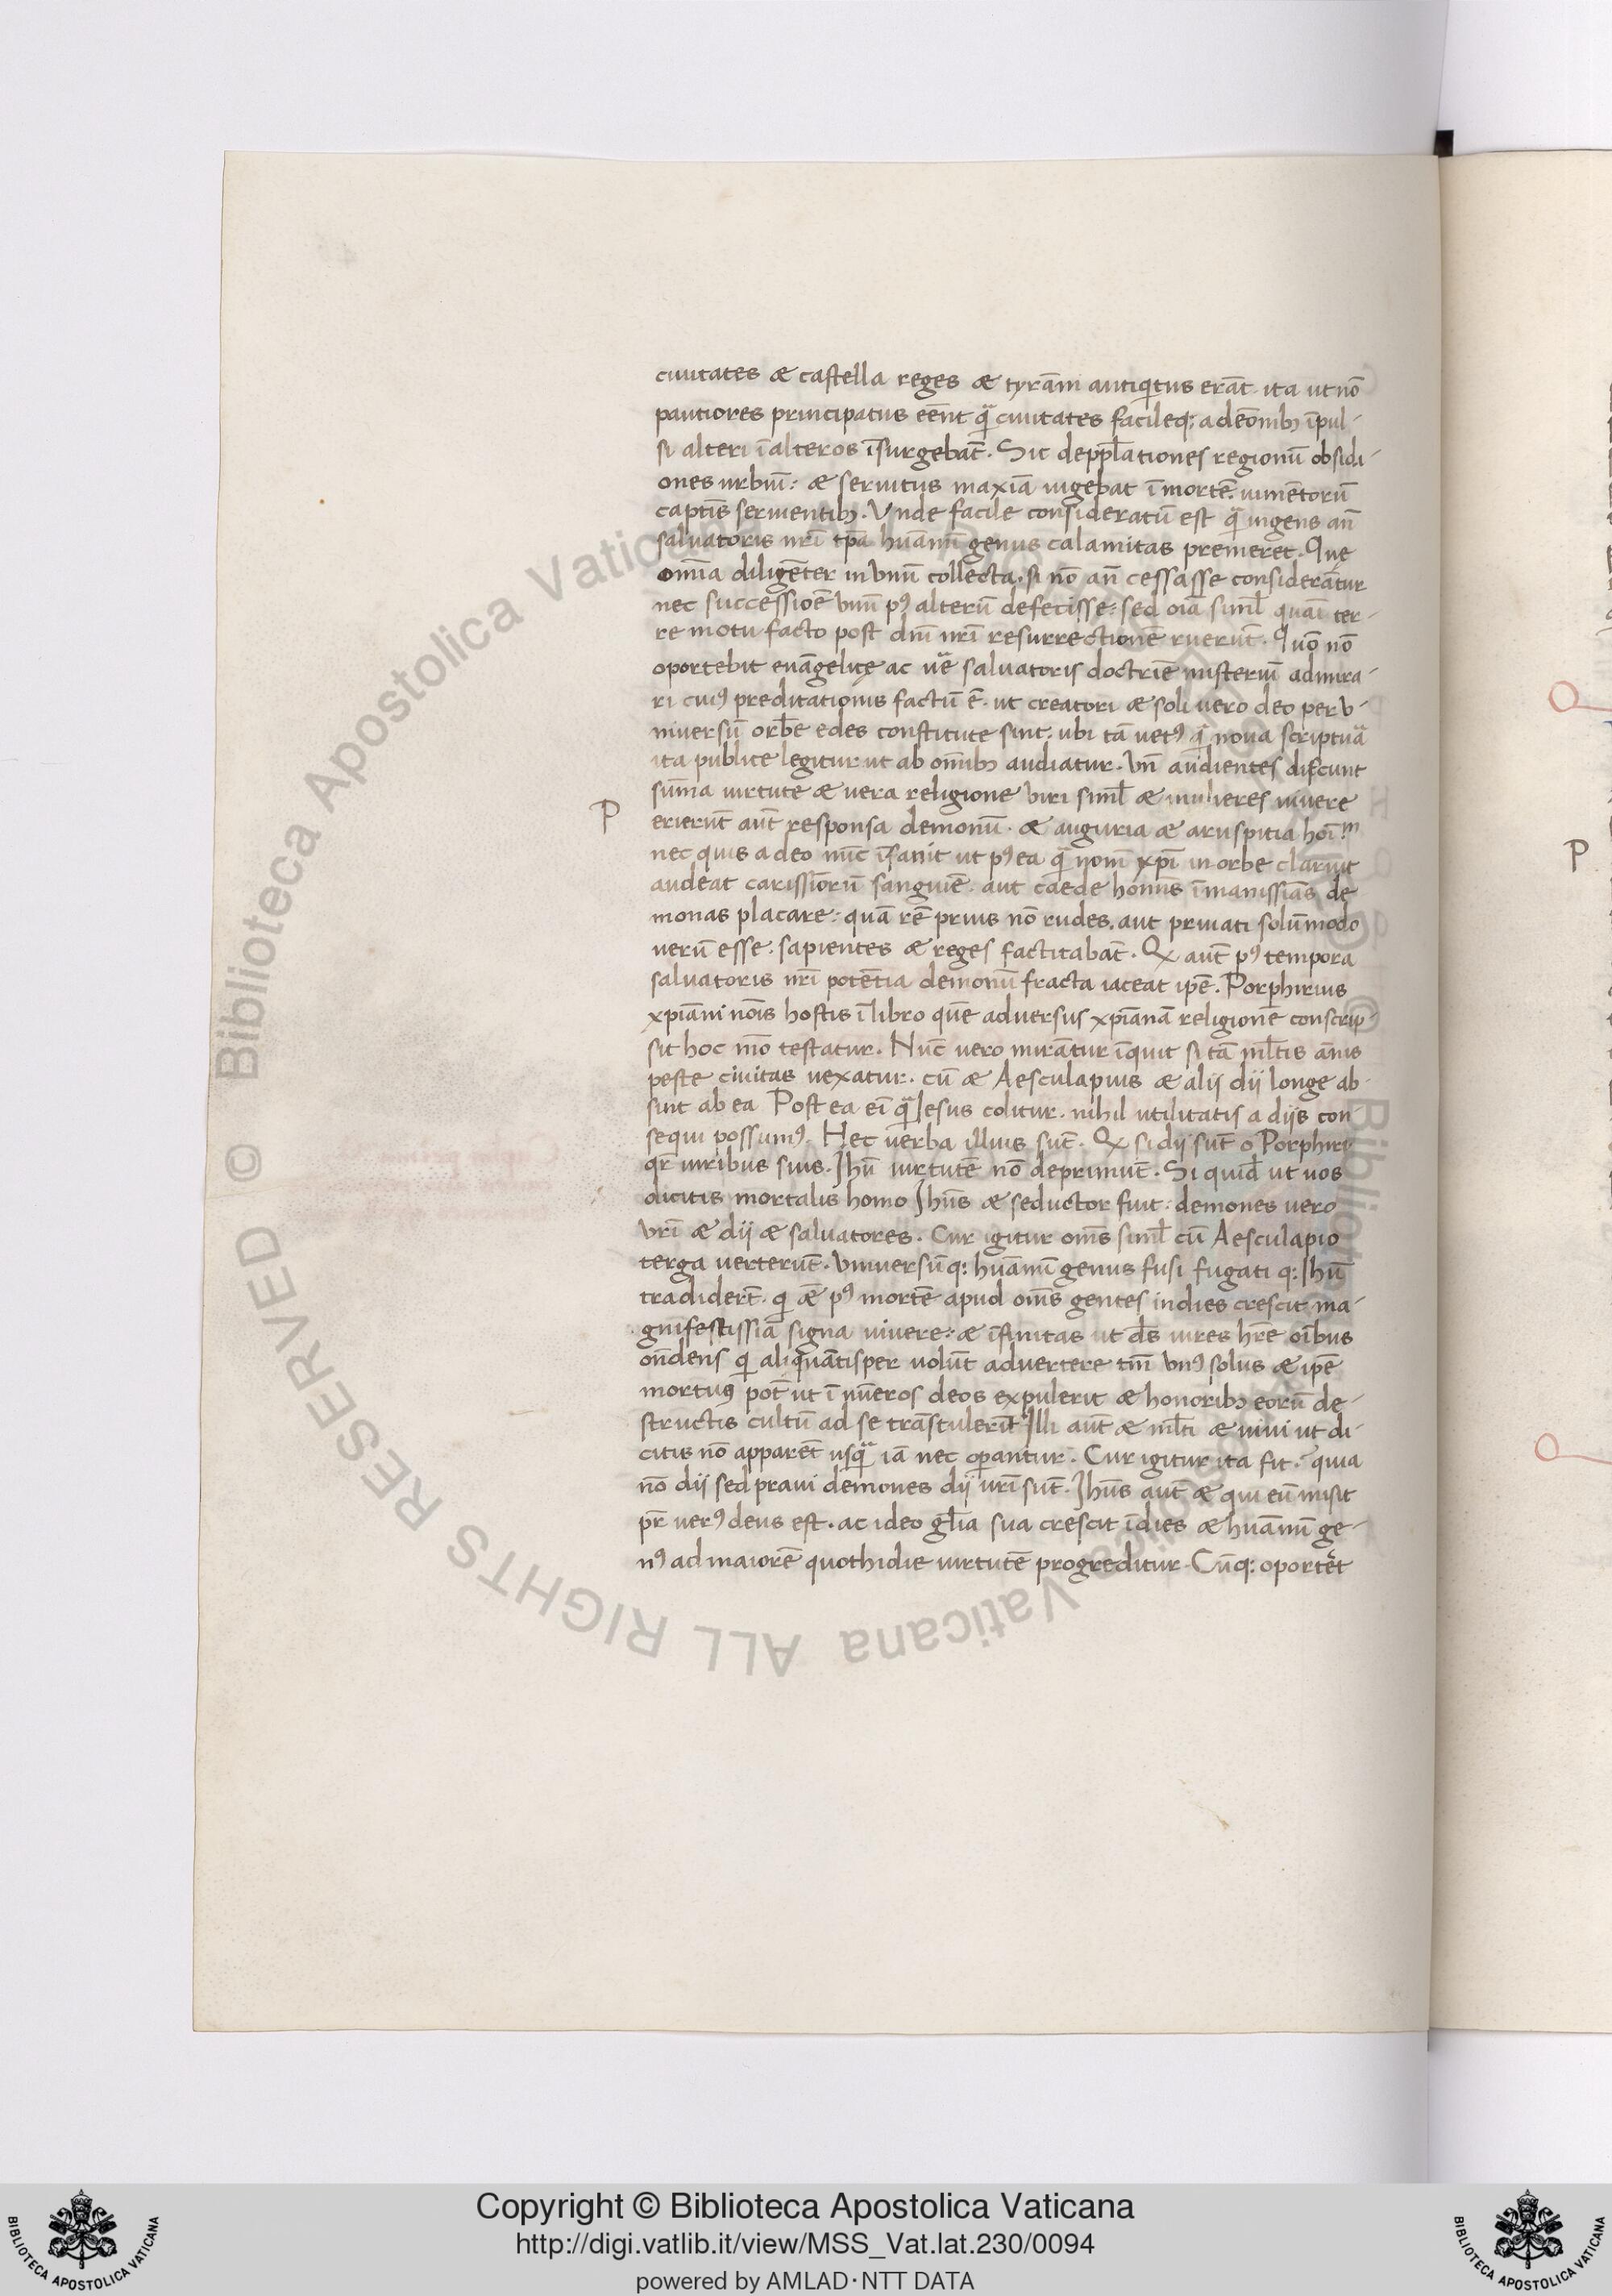 ciuitates & castella reges & tyrāni antiqͥtus erāt. ita ut nō
pautiores principatus eēnt qͣ̄ ciuitates facileq; a deōnibꝫ īpul-
si alteri ī alteros īsurgebāt. Sic deppl̄ationes regionū obsidi-
ones urbiū: & seruitus maxīa uigebat ī mortē. iumētorū
captīs seruientibꝫ. Vnde facile consideratū est qͣ̄ ingens an̄
saluatoris nr̄i tp̄a hūanū genus calamitas premeret. Que
omīa diligēter in vnū collecta. si nō an̄ cessasse considerātur
nec successiōe vnū pꝰ alterū defecisse: sed oīa siml̄ quāī ter-
re motu facto post dnī nr̄i resurrectionē ruerūt. Quō nō
oportebit euāgelicę ac ue̅ saluatoris doctrīe misteriū admira-
ri cuiꝰ preditationis factū ē. ut creatori & soli uero deo per v-
niuersū orbē edes constitute sint. ubi tā uetꝰ qͣ̄ noua scriptuͣ
ita publice legitur ut ab omībꝫ audiatur. Vn̄ audientes discunt
sūma uirtute & uera religione viri siml̄ & mulieres uiuere
P erierūt aūt responsa demonū. & auguria & aruspitia hoīm
nec quis adeo nūc īsanit ut pꝰea qͣ̄ nom̄ xp̄i in orbe claruit
audeat carissīorū sanguiē. aut caede homīs īmanissīas de
monas placare: quā rē prius nō rudes. aut priuati solūmodo
uerū esse: sapientes & reges factitabāt. Qꝫ aūt pꝰ tempora
saluatoris nr̄i potētia demonū fracta iaceat ip̄e. Porphirius
xp̄iāni nōis hostis ī libro quē adversus xp̄ianā religionē conscrip-
sit hoc mō testatur. Nūc uero mirātur īquit si tā ml̄tis ānis
peste ciuitas uexatur. cū & Aesculapius & alij dij longe ab-
sint ab ea Post ea eī qͣ̄ Iesus colitur. nihil utilitatis a dijs con-
sequi possumꝰ. Hec uerba illius sūt. Qꝫ si dij sūt o Porphiri
qr̄ uiribus suis. Jhū uirtutē nō deprimūt. Si quid̄ ut uos
dicitis mortalis homo Jhūs & seductor fuit: demones uero
vr̄i & dij & saluatores. Cur igitur om̄s siml̄ cū Aesculapio
terga uerterūt. vniuersūq: hūanū genus fusi fugati q: Jhū
tradidert̄. qͥ & pꝰ mortē apud om̄s gentes indies crescit ma-
gnifestissīa signa uiuere: & īfinitas ut dꝰs uires hr̄e oībus
on̄dens qͥ aliquātisper uolūt advertere tm̄ vnꝰ solus & ip̄e
mortuꝰ pot̄ ut ī nūeros deos expulerit & honoribꝫ eorū de-
structis cultū ad se trāstulerit Illi aūt & ml̄ti & uiui ut di-
citis nō apparēt usqͣ̄ iā nec op̄antur. Cur igitur ita fit. quia
nō dij sed praui demones dij vr̄i sūt. Jhūs aūt & qui eū misit
pr̄ uerꝰ deus est. ac ideo gl̄ia sua crescit īdies & hūanū ge-
nꝰ ad maiorē quothidie uirtutē progreditur. Cūq: oportēt
P
© Biblioteca Apostolica Vaticana ALL RIGHTS RESERVED
Copyright © Biblioteca Apostolica Vaticana
http://digi.vatlib.it/view/MSS_Vat.lat.230/0094
powered by AMLAD·NTT DATA
BIBLIOTECA APOSTOLICA VATICANA
BIBLIOTECA APOSTOLICA VATICANA